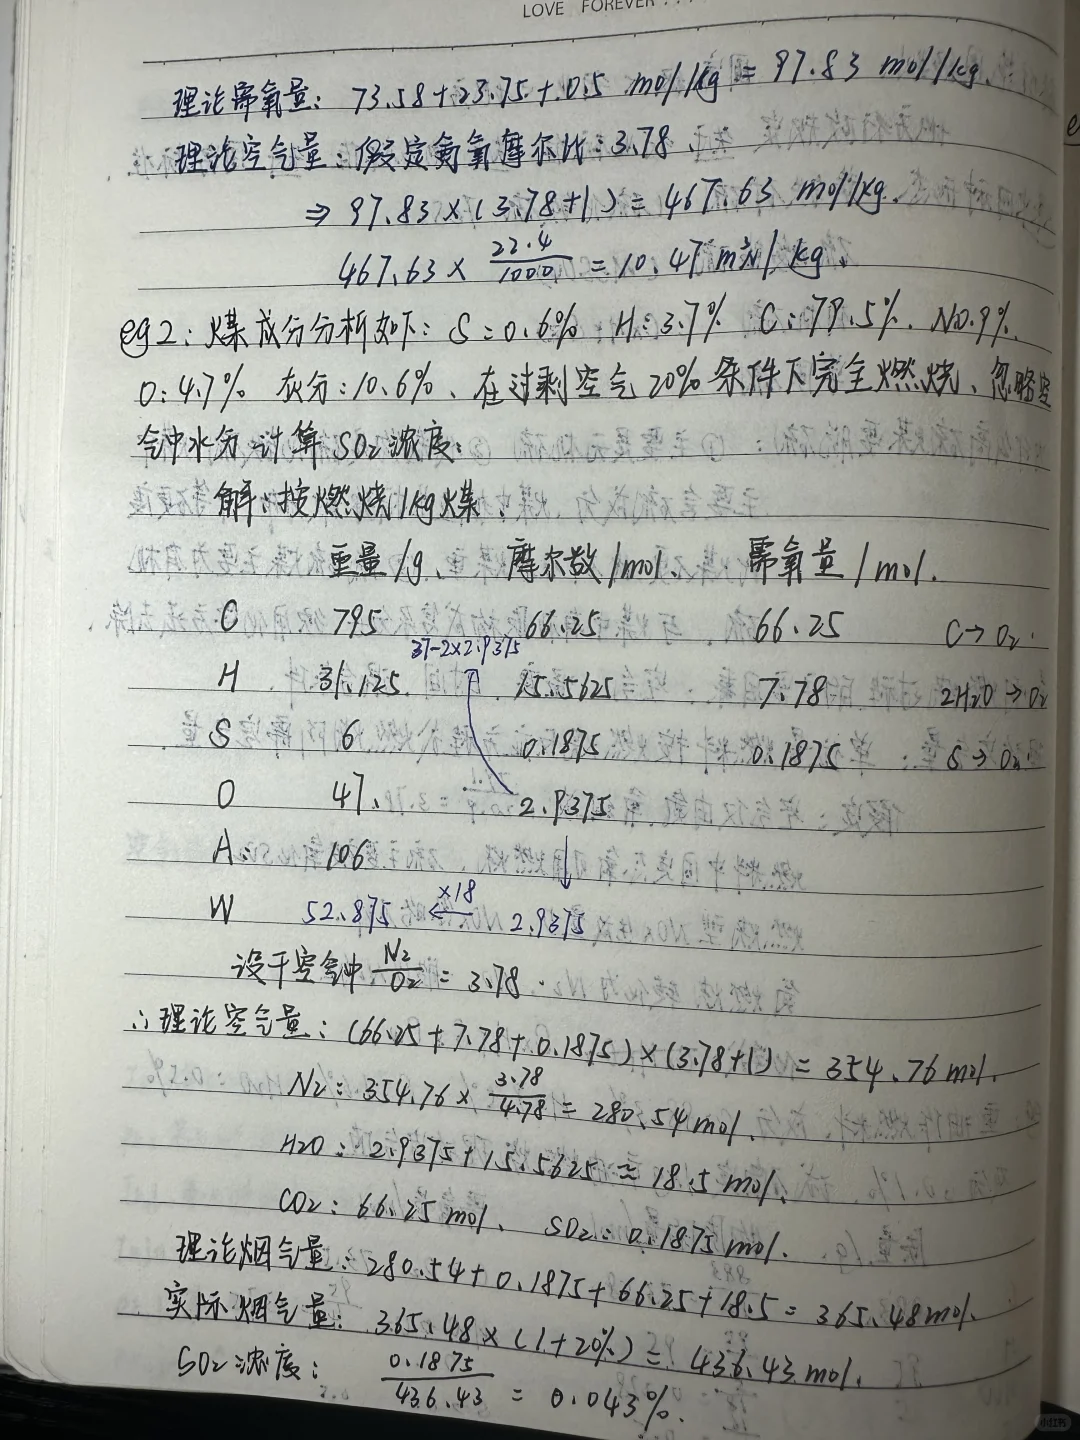 LOVE FOREVER....
理论需氧量: 73.58+23.75+0.5 mol/kg = 97.83 mol/kg.
理论空气量: 假定氮氧摩尔比: 3.78、
⇒ 97.83×(3.78+1) = 467.63 mol/kg.
467.63 × 22.4/1000 = 10.47 m³N/kg、
eg2: 煤成分分析如下: S:0.6% H:3.7% C:79.5%、N0.9%、
O:4.7% 灰分:10.6%、在过剩空气20%条件下完全燃烧、忽略空
气中水分、计算SO2浓度:
解:按燃烧1kg煤、
重量/g、 摩尔数/mol、 需氧量/mol.
C 795 66.25 66.25 C→O2.
37-2×2.9375
H 31.125 15.5625 7.78 2H2O→O2
S 6 0.1875 0.1875 S→O2.
O 47. 2.9375
A: 106
W 52.875 ←×18 2.9375
设干空气中 N2/O2 = 3.78.
∴理论空气量: (66.25+7.78+0.1875)×(3.78+1) = 354.76 mol.
N2: 354.76 × 3.78/4.78 = 280.54 mol.
H2O: 2.9375+15.5625 = 18.5 mol.
CO2: 66.25 mol、 SO2: 0.1875 mol.
理论烟气量: 280.54+0.1875+66.25+18.5 = 365.48 mol.
实际烟气量: 365.48×(1+20%) = 436.43 mol.
SO2浓度: 0.1875/436.43 = 0.043%.